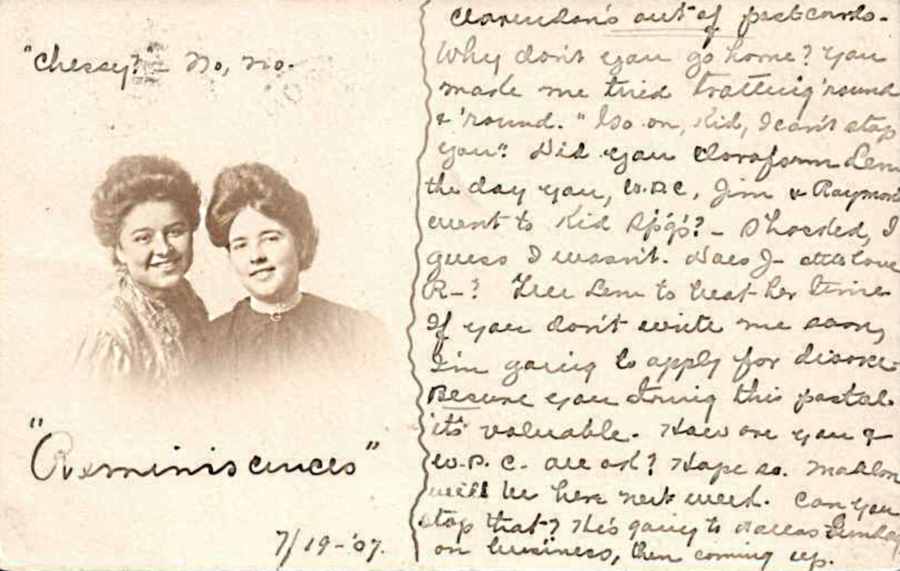 "Chessy?" - No, no.
"Reminiscences"
7/19-'07.
Clarendon's out of postcards.
Why don't you go home? You
make me tired trotting 'round
& 'round. "Go on, Kid, I can't stop
you". Did you cloraform Lem
the day you, W.P.C., Jim & Raymond
went to Kid Spg's? - I hooded, I
guess I wasn't. Does J- still love
R-? Tell Lem to beat her time
If you don't write me soon,
I'm going to apply for divorce.
Besure you bring this postal.
it's valuable. How are you &
W.P.C. all o.k? Hope so. Mahlon
will be here next week. Can you
stop that? He's going to Dallas Sunday
on business, then coming up.